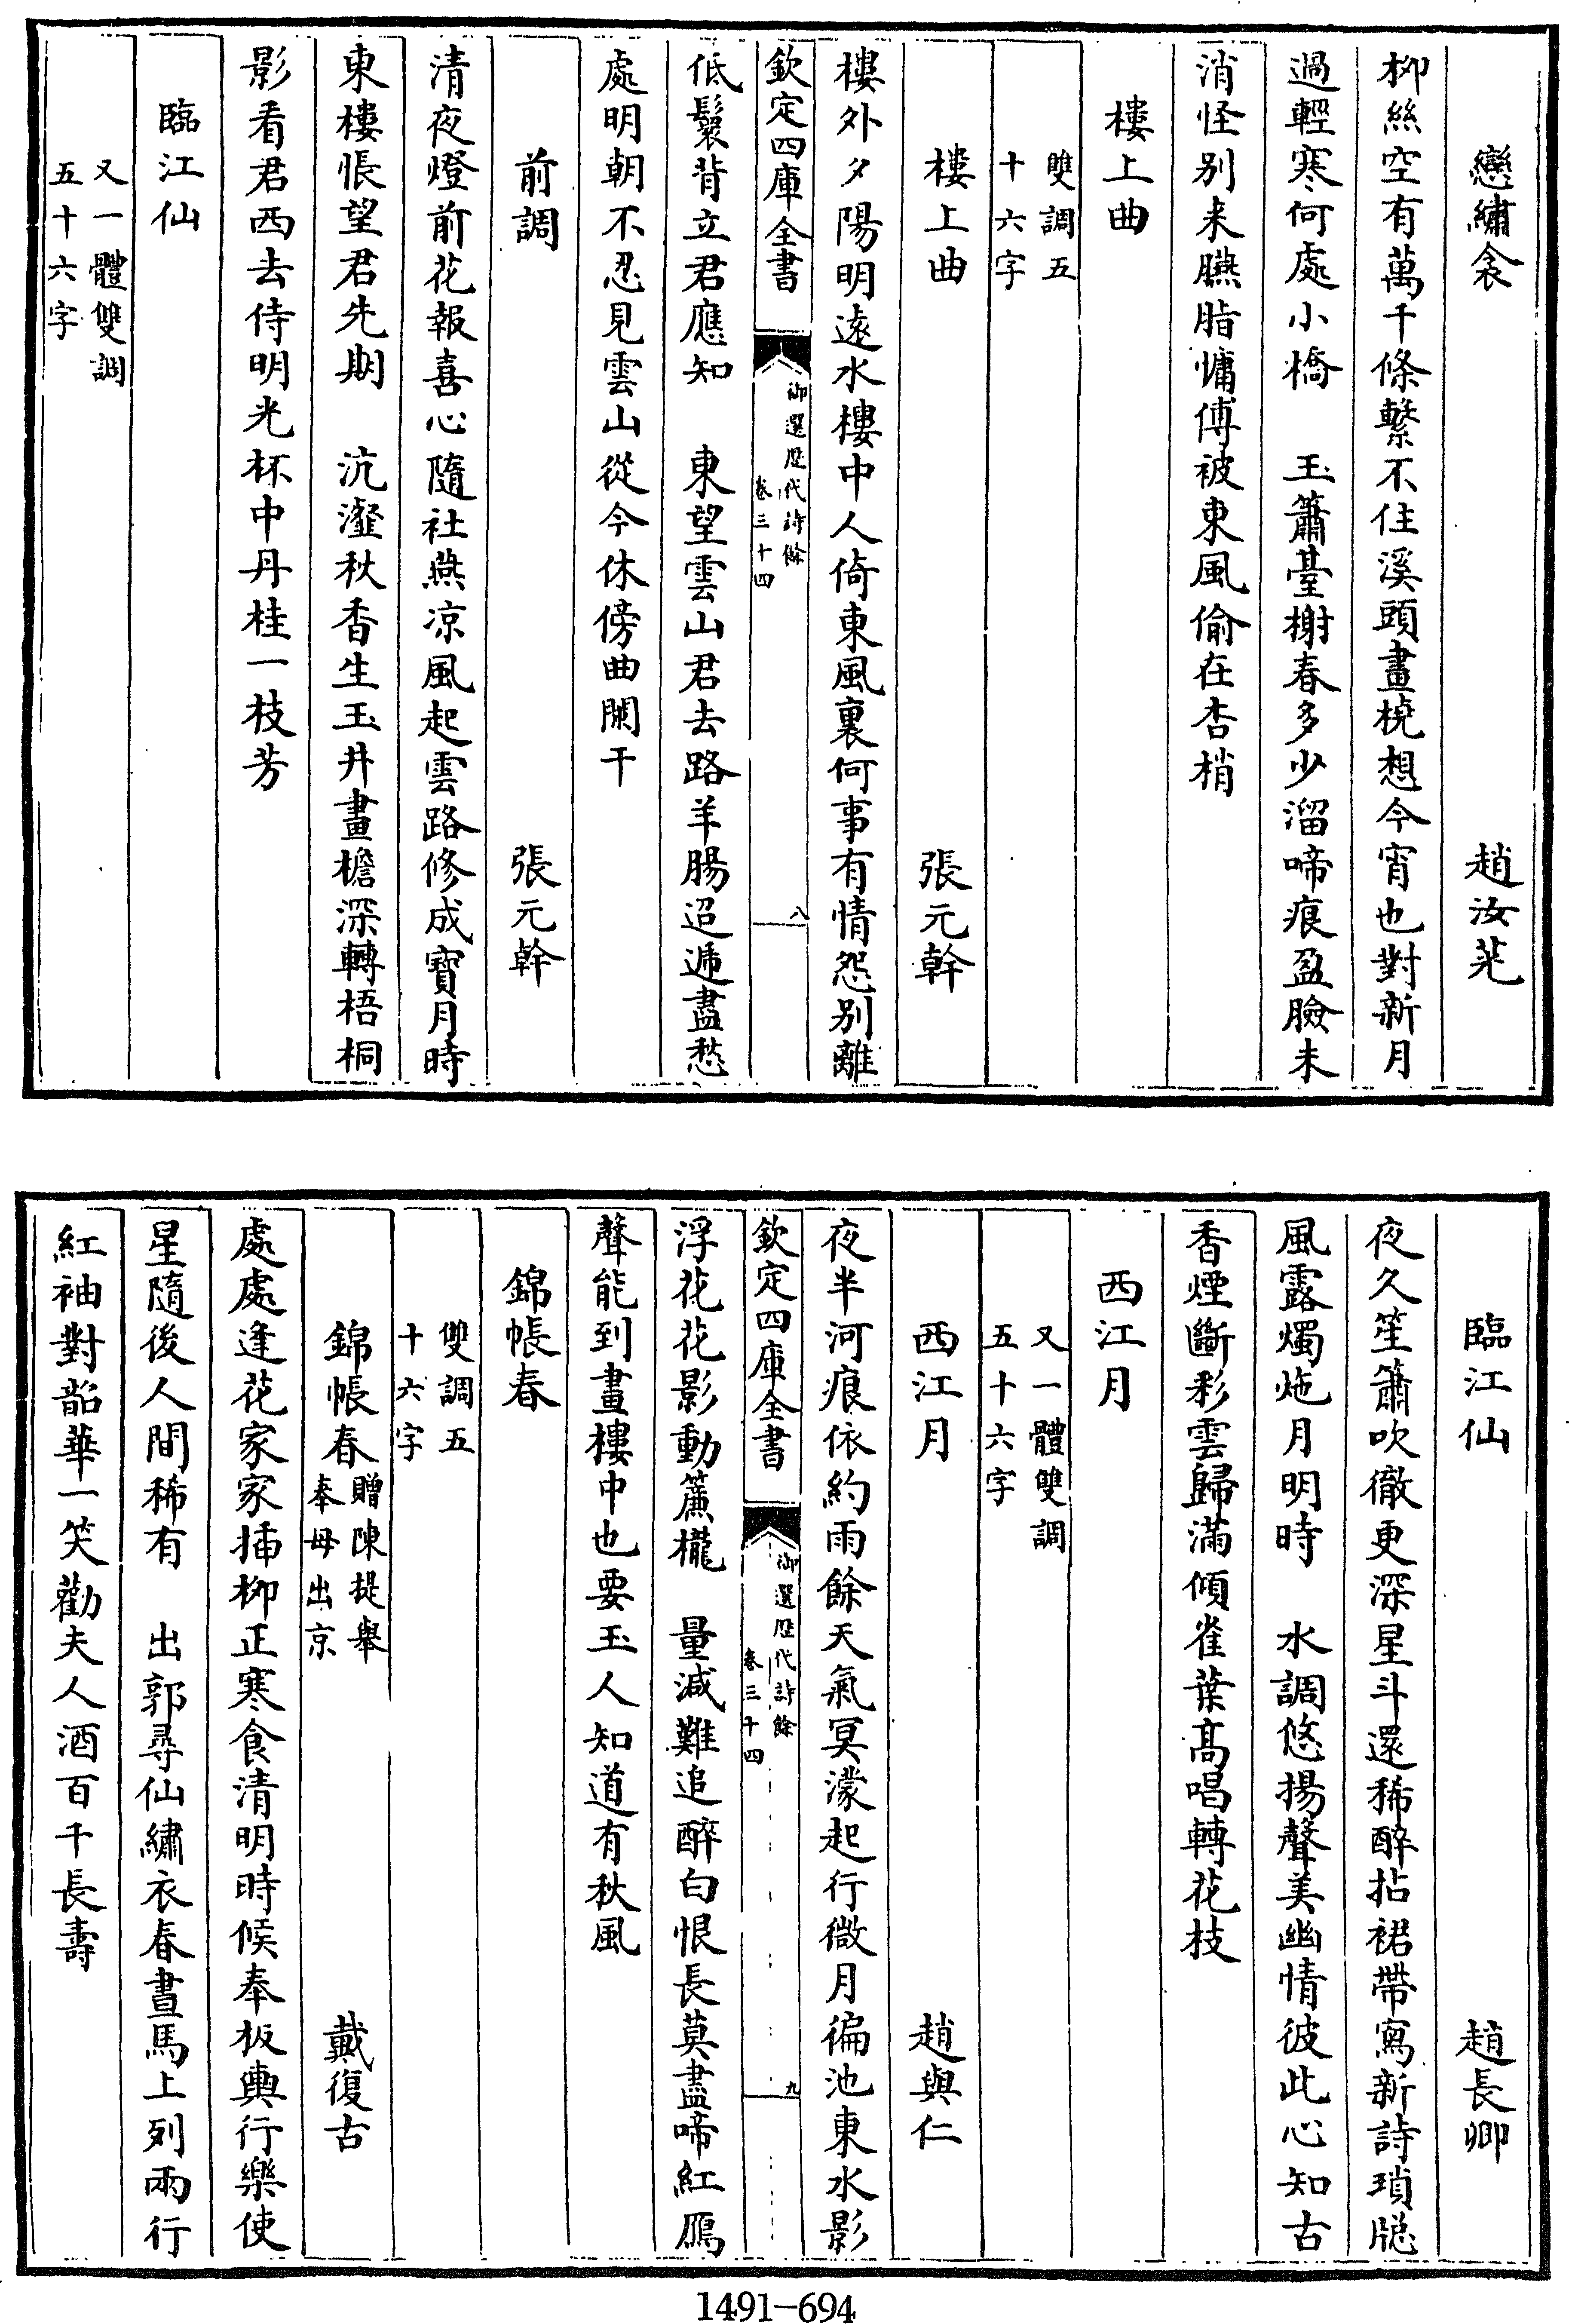 戀繡衾　趙汝茪
柳絲空有萬千條繫不住溪頭畫橈想今宵也對新月
過輕寒何處小橋　玉簫臺榭春多少溜啼痕盈臉未
消怪别来臙脂慵傅被東風偷在杏梢
樓上曲
雙調五
十六字
樓上曲　張元幹
樓外夕陽明遠水樓中人倚東風裏何事有情怨别離
欽定四庫全書
御選歴代詩餘
卷三十四
八
低鬟背立君應知　東望雲山君去路羊腸迢遞盡愁
處明朝不忍見雲山從今休傍曲闌干
前調　張元幹
清夜燈前花報喜心隨社燕凉風起雲路修成寳月時
東樓悵望君先期　沆瀣秋香生玉井畫檐深轉梧桐
影看君西去侍明光杯中丹桂一枝芳
臨江仙
又一體雙調
五十六字
臨江仙　趙長卿
夜久笙簫吹徹更深星斗還稀醉拈裙帶寫新詩瑣牕
風露燭灺月明時　水調悠揚聲美幽情彼此心知古
香煙斷彩雲歸滿傾雀葉高唱轉花枝
西江月
又一體雙調
五十六字
西江月　趙與仁
夜半河痕依約雨餘天氣冥濛起行微月徧池東水影
欽定四庫全書
御選歴代詩餘
卷三十四
九
浮花花影動簾櫳　量減難追醉白恨長莫盡啼紅鴈
聲能到畫樓中也要玉人知道有秋風
錦帳春
雙調五
十六字
錦帳春贈陳提舉
奉母出京　戴復古
處處逢花家家揷柳正寒食清明時候奉板輿行樂使
星隨後人間稀有　出郭尋仙繡衣春晝馬上列兩行
紅袖對韶華一笑勸夫人酒百千長壽
1491—694